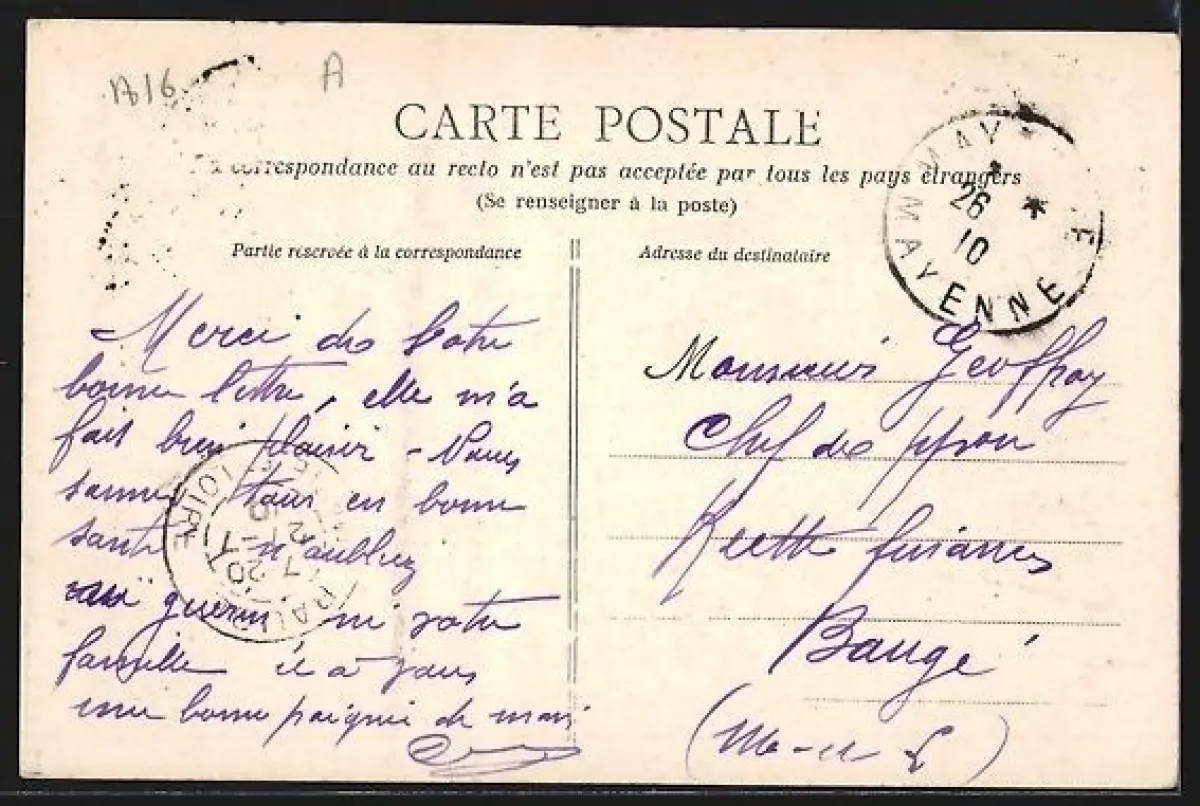 A
CARTE POSTALE
correspondance au recto n'est pas acceptée par tous les pays étrangers
(Se renseigner à la poste)
Partie réservée à la correspondance
Adresse du destinataire
MAY
MAYENNE
26
10
Merci de votre
bonne lettre, elle m'a
fait bien plaisir - Nous
sommes tous en bonne
santé n'oubliez
guerin ni votre
famille et à vous
une bonne poignée de main
Monsieur Geoffroy
Chef de
Recette finances
Baugé
(M-et L)
LOIRE
7 20